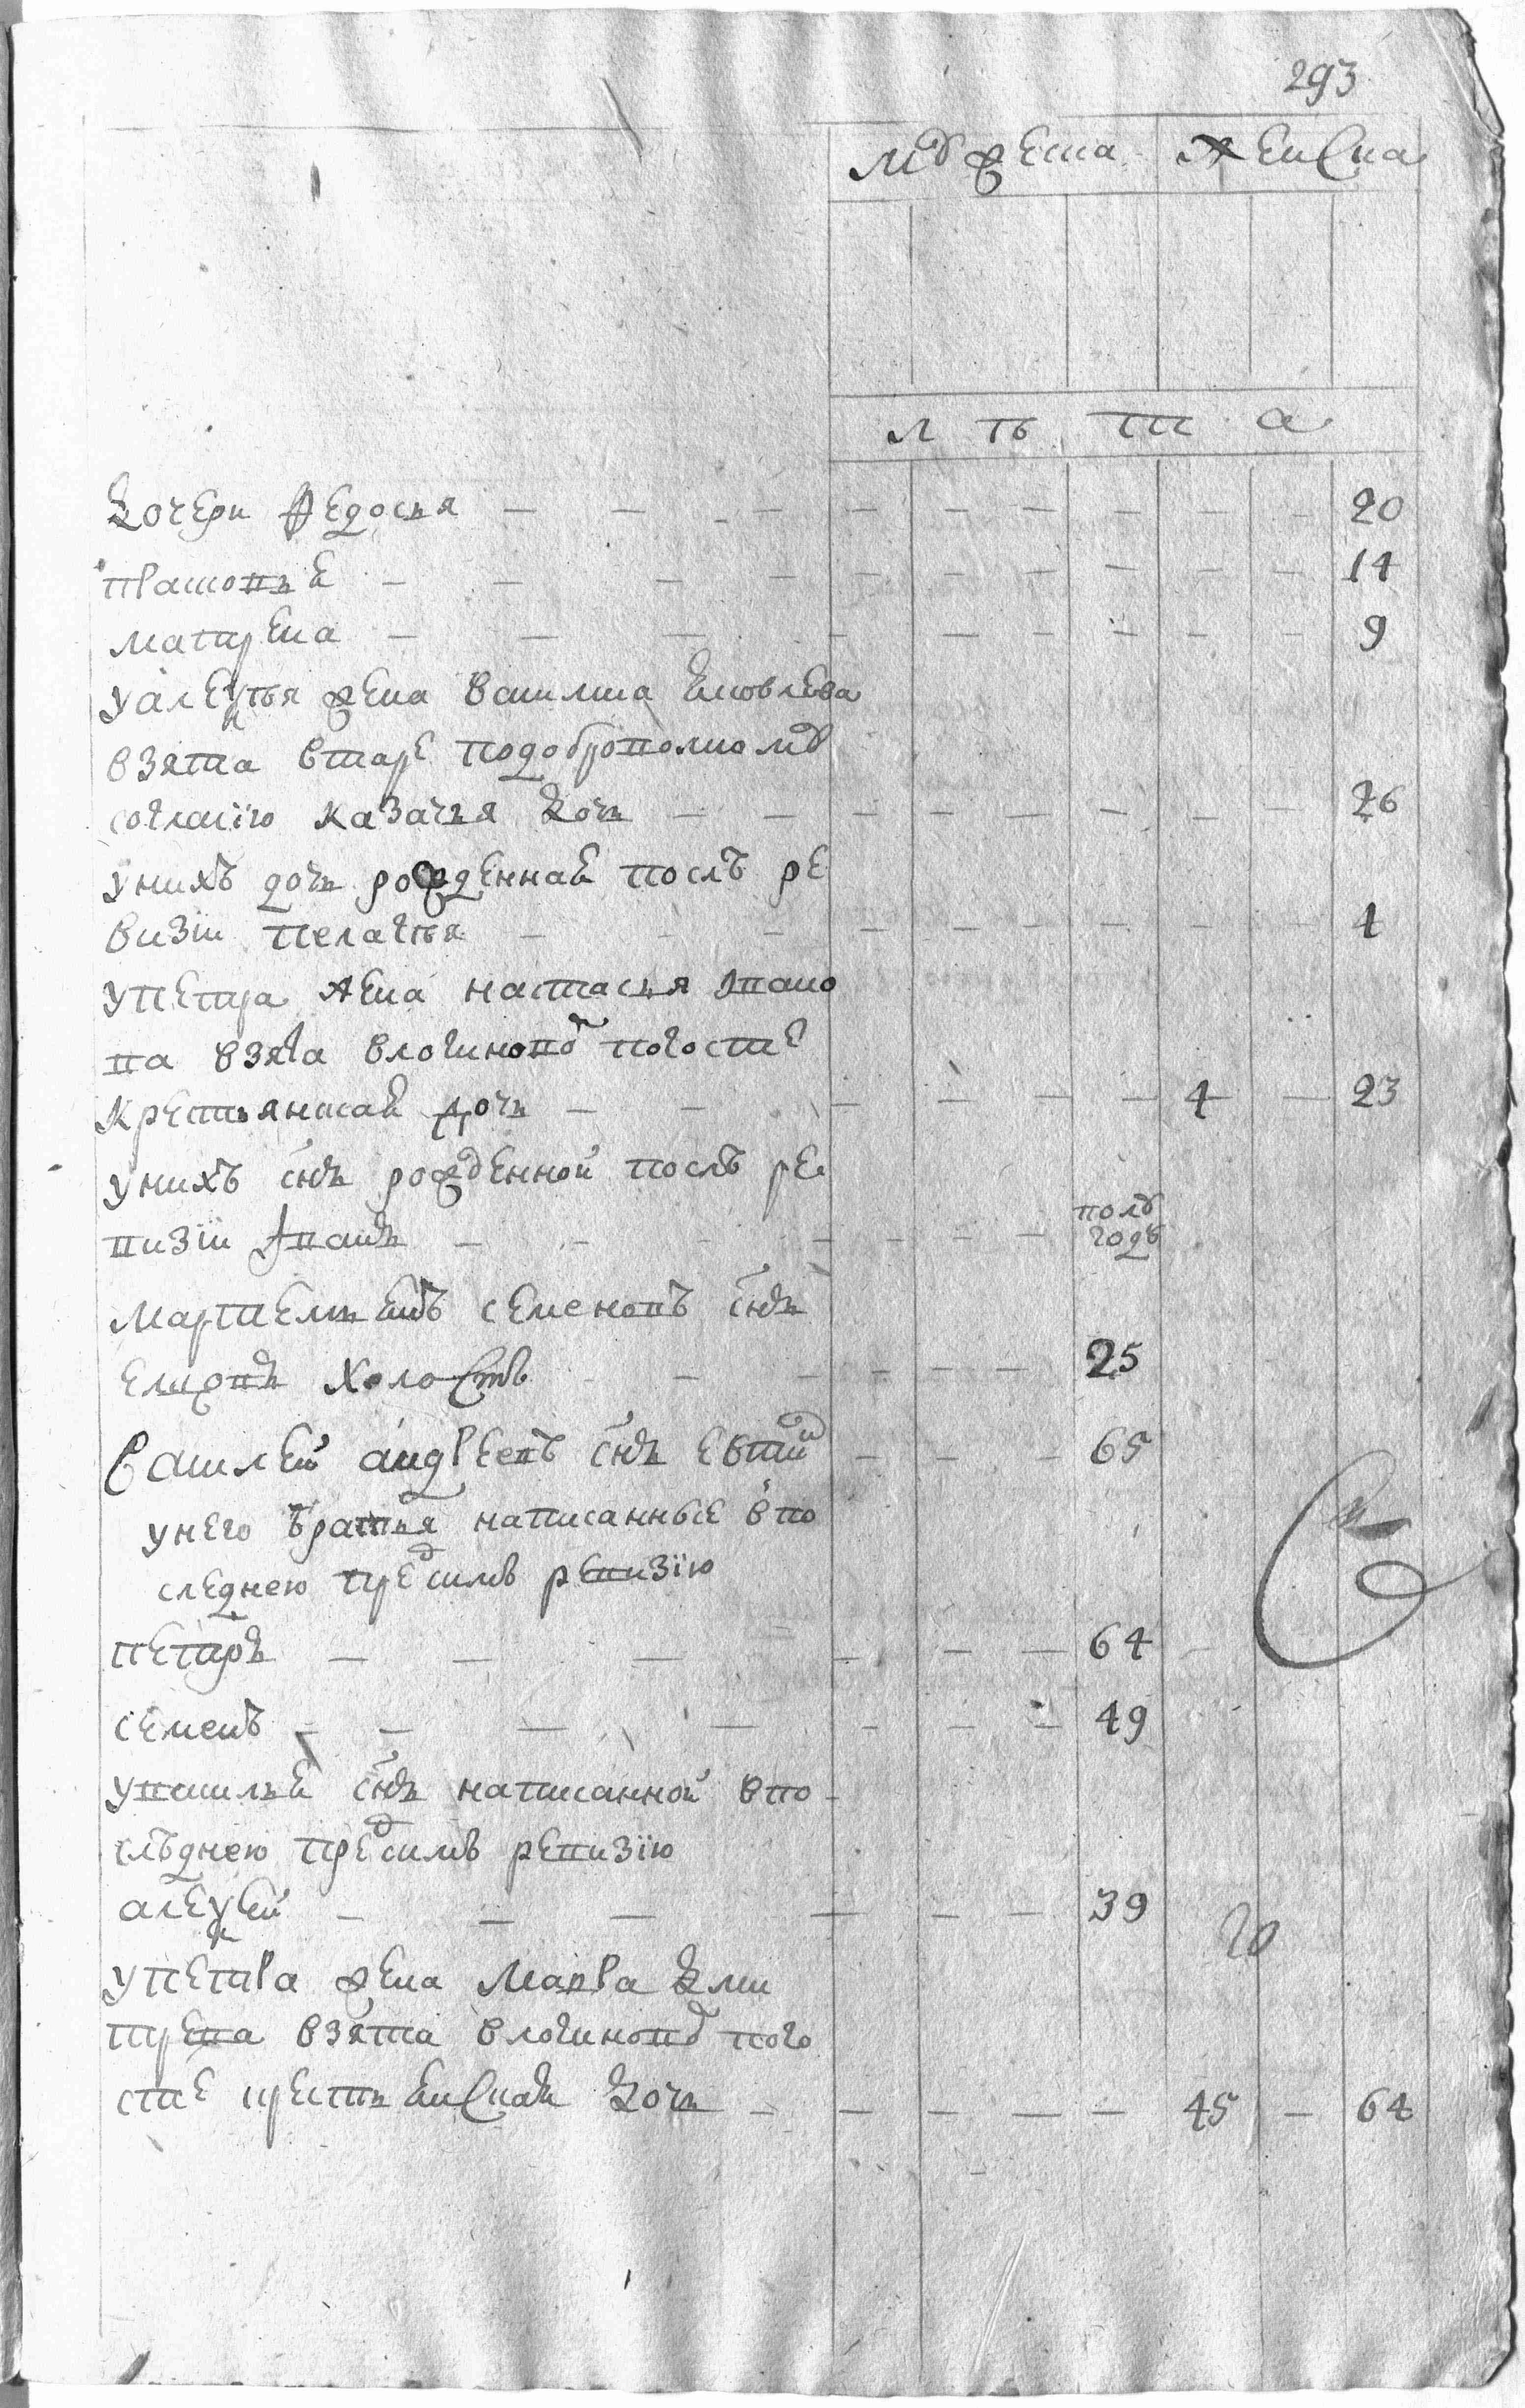 293
мужеска женска
лѣта
дочери федосья 20
прасковья 14
матрена 9
у алеѯѣя жена василиса яковлева
взята в таре по добропольному
согласiю казачья дочь 26
у нихъ дочь рожденная послѣ ре
визiи пелагѣя 4
у петра жена настасья
ва взята в логиновѣ погосте
крестьянская дочь 4 23
у нихъ снъ рожденной послѣ ре
визiи иванъ полъ годъ
мартемьянъ семеновъ снъ
холостъ 25
василей андреевъ снъ 65
у него братья написанные в по
следнею пред симъ ревизiю
петръ 64
семенъ 49
у василья снъ написанной в по
слѣднею пред симъ ревизiю
алеѯей 39
у петра жена марва дми
трева взята в логиновѣ пого
сте крестьянская дочь 45 64